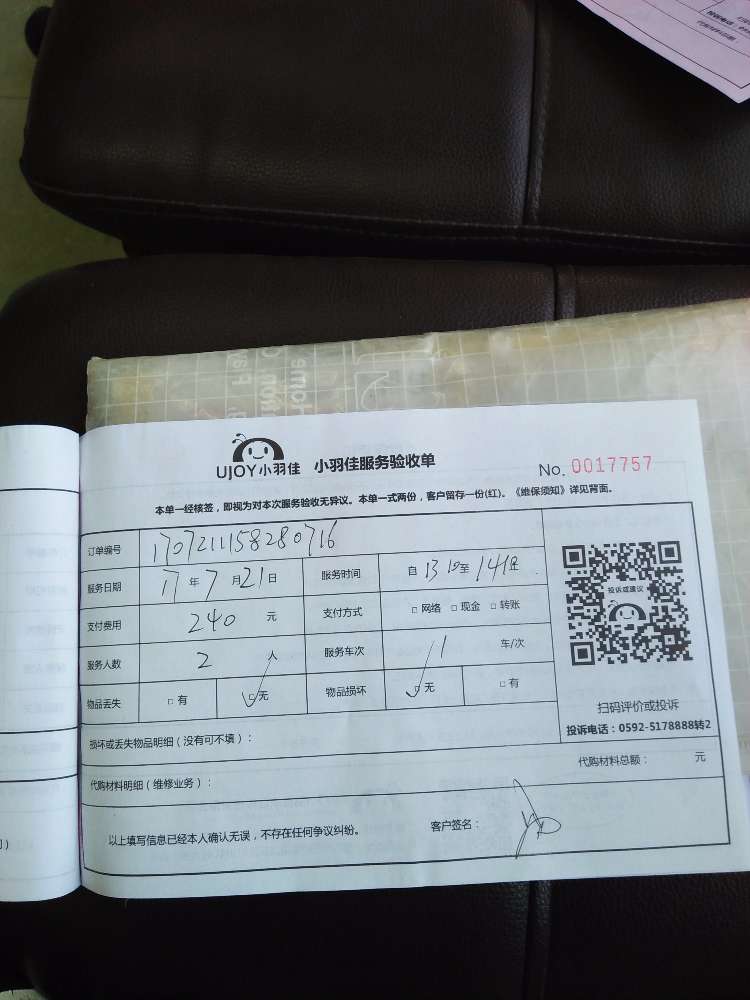 UJOY小羽佳 小羽佳服务验收单 No. 0017757
本单一经核签，即视为对本次服务验收无异议。本单一式两份，客户留存一份(红)。《维保须知》详见背面。
订单编号 1707211158280716
服务日期 17 年 7 月 21 日 服务时间 自 13 至
支付费用 240 元 支付方式 □ 网络 □ 现金 □ 转账
服务人数 2 人 服务车次 1 车/次
物品丢失 □ 有 □ 无 物品损坏 □ 无 □ 有
投诉或建议
扫码评价或投诉
投诉电话：0592-5178888转2
损坏或丢失物品明细（没有可不填）：
代购材料明细（维修业务）： 代购材料总额： 元
以上填写信息已经本人确认无误，不存在任何争议纠纷。 客户签名：